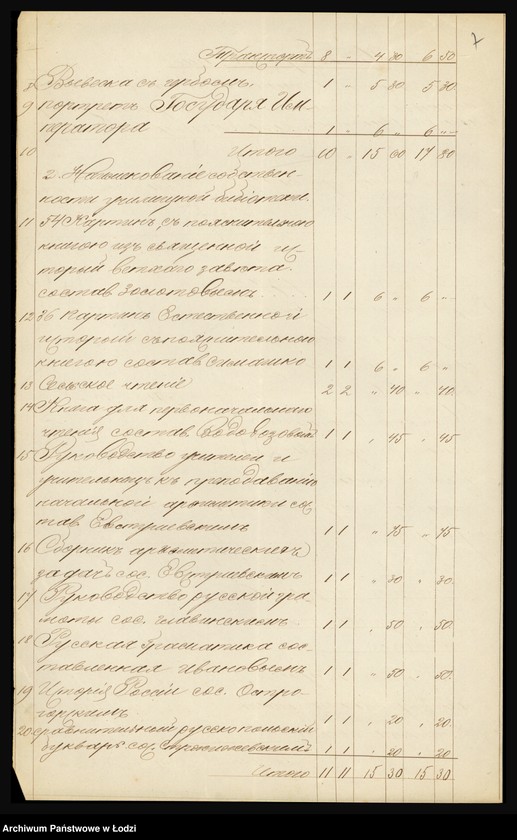 7
Транспортъ 8 " 4 30 6 50
8 Вывеска съ гербомъ. 1 " 5 30 5 30
9 портретъ Государя Им-
ператора 1 " 6 " 6 "
10 Итого 10 " 15 60 17 80
2. Наименованіе собствен-
ности училищной библіотеки.
11 54 Картинъ съ пояснительною
книгою изъ священной ис-
торіи ветхаго завѣта
состав Золотовымъ 1 1 6 " 6 "
12 36 Картинъ Естественной
исторіи съ пояснительною
книгою состав Симашко 1 1 6 " 6 "
13 Сельское чтеніе 2 2 " 40 " 40
14 Книга для первоначальнаго
чтенія состав. Водовозовымъ 1 1 " 45 " 45
15 Руководство учителю и
учительницъ къ преподаванію
начальной ариѳметики сос
тав Евтушевскимъ 1 1 " 75 " 75
16 Сборникъ ариѳметическихъ
задачъ сос. Евтушевскимъ 1 1 " 30 " 30
17 Руководство русской гра-
моты сос. Главинскимъ 1 1 " 50 " 50
18 Русская Граматика сос-
тавленная Ивановымъ 1 1 " 50 " 50
19 Исторія Россіи сос. Остро-
горскимъ 1 1 " 20 " 20
20 сравнительный русско польскій
букварь сос. 1 1 " 20 " 20
Итого 11 11 15 30 15 30
Archiwum Państwowe w Łodzi